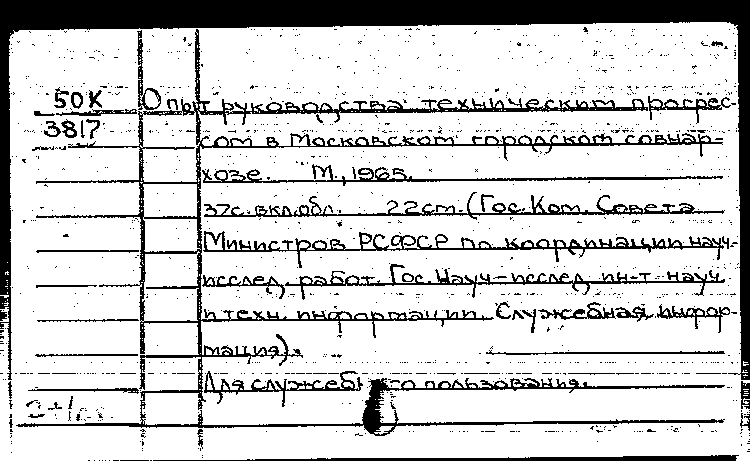 50К
3817
Опыт руководства техническим прогрес-
сом в Московском городском совнар=
хозе. М., 1965.
37с.вкл.обл. 22см. (Гос.Ком. Совета
Министров РСФСР по координации науч-
исслед. работ. Гос. науч-исслед. ин-т науч.
и техн. информации. Служебная инфор-
мация).
Для служебного пользования.